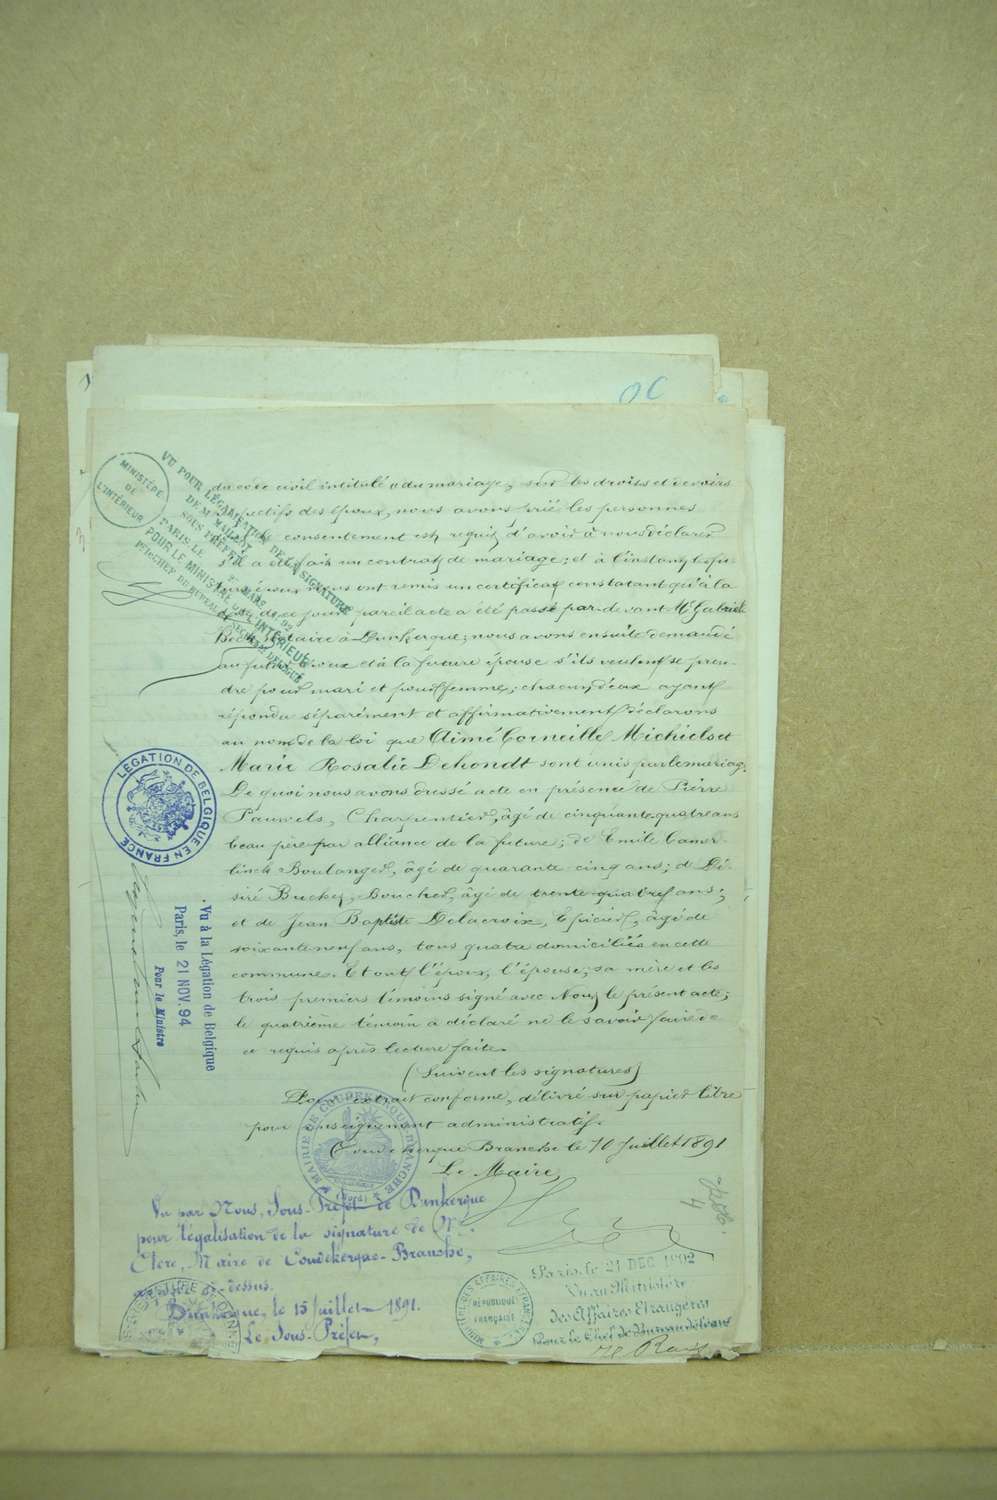 OC
MINISTÈRE
DE
L'INTÉRIEUR
VU POUR LÉGALISATION DE LA SIGNATURE
DE M. MAILLET
SOUS PRÉFET
PARIS LE 2 MARS 92
POUR LE MINISTRE DE L'INTÉRIEUR
du code civil intitulé "du mariage, sur les droits et devoirs
respectifs des époux, nous avons prié les personnes
consentement est requis d'avoir à nous déclarer
s'il a été fait un contrat de mariage; et à l'instant les fu-
turs époux nous ont remis un certificat constatant qu'à la
date de ce jour pareil acte a été passé par-devant Me Gabriel
Beck, Notaire à Dunkerque; nous avons ensuite demandé
au futur époux et à la future épouse s'ils veulent se pren-
dre pour mari et pour femme; chacun d'eux ayant
répondu séparément et affirmativement déclarons
au nom de la loi que Aimé Corneille Michiels et
Marie Rosalie Dehondt sont unis par le mariage.
De quoi nous avons dressé acte en présence de Pierre
Pauwels, Charpentier, âgé de cinquante-quatre ans
beau père par alliance de la future; de Emile Camer-
linck Boulanger, âgé de quarante cinq ans; de Dé-
siré Buckez, Boucher, âgé de trente-quatre ans;
et de Jean Baptiste Delacroix, Epicier, âgé de
soixante-neuf ans, tous quatre domiciliés en cette
commune. Et ont l'époux, l'épouse, sa mère et les
trois premiers témoins signé avec Nous le présent acte;
le quatrième témoin a déclaré ne le savoir faire de
ce requis après lecture faite.
(Suivent les signatures)
Pour extrait conforme, délivré sur papier libre
pour renseignement administratif.
Coudekerque Branche le 10 Juillet 1891
Le Maire,
MAIRIE DE COUDEKERQUE-BRANCHE
(Nord)
LÉGATION DE BELGIQUE EN FRANCE
Vu à la Légation de Belgique
Paris, le 21 NOV. 94
Pour le Ministre
Vu par Nous, Sous-Préfet de Dunkerque
pour légalisation de la signature de Mr.
Clère, Maire de Coudekerque-Branche,
apposée ci-dessus.
Dunkerque, le 15 Juillet 1891.
Le Sous-Préfet,
MINISTÈRE DES AFFAIRES ETRANGÈRES
RÉPUBLIQUE
FRANÇAISE
Paris, le 21 DEC 1892
Vu au Ministère
des Affaires Etrangères
Pour le Chef de Bureau délégué